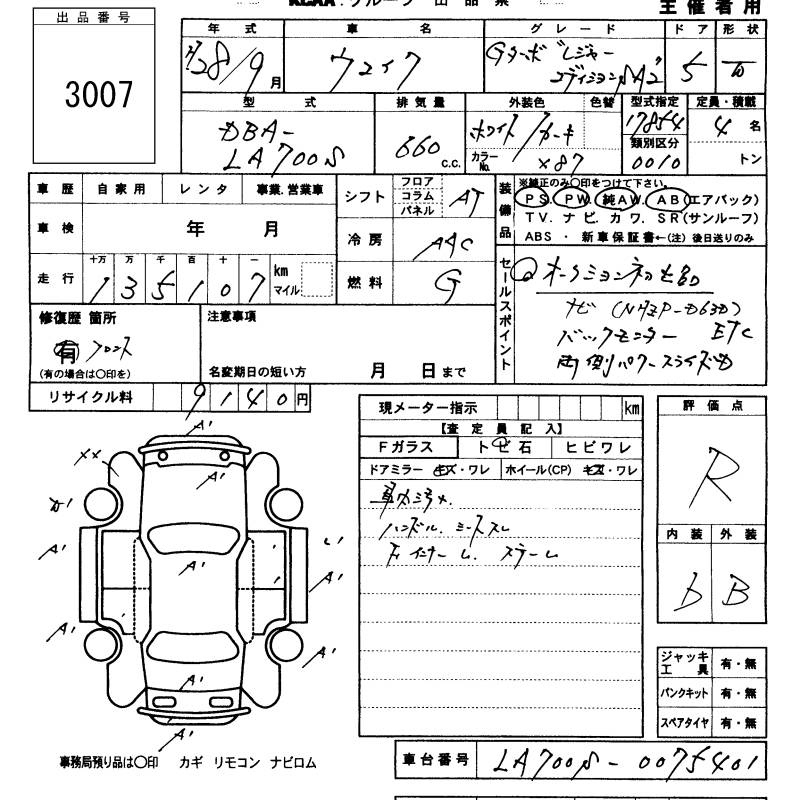 KCAA グループ 出品票
主催者用
出品番号
3007
年式 車名 グレード ドア 形状
H28/9月 ウェイク Gターボ レジャー
エディションSA2 5
型式 排気量 外装色 色替 型式指定 定員・積載
DBA-
LA700S 660 c.c. ホワイト/カーキ 17854 4 名
類別区分
カラーNo. X87 0010 トン
車歴 自家用 レンタ 事業.営業車
シフト フロア コラム パネル AT
装備品 ※純正のみ〇印をつけて下さい。
PS. PW. 純AW. AB(エアバック)
TV. ナビ. カワ. SR(サンルーフ)
ABS ・ 新車保証書←(注) 後日送りのみ
車検 年 月
冷房 AAC
走行 十万 万 千 百 十 一
135107 km マイル
燃料 G
セールスポイント
ナビ (NHZP-D63D)
バックモニター ETC
両側パワースライドD
修復歴 箇所
有 フロント
(有の場合は〇印を)
注意事項
名変期日の短い方 月 日まで
リサイクル料 9140円
現メーター指示 km
【査定員記入】
Fガラス トビ石 ヒビワレ
ドアミラー キズ・ワレ ホイール(CP) キズ・ワレ
ハンドル.
評価点
R
内装 外装
b B
A'
XX
A'
A'
A'
A'
A'
A'
A'
A'
A'
ジャッキ工具 有・無
パンクキット 有・無
スペアタイヤ 有・無
事務局預り品は〇印 カギ リモコン ナビロム
車台番号 LA700S-0075401